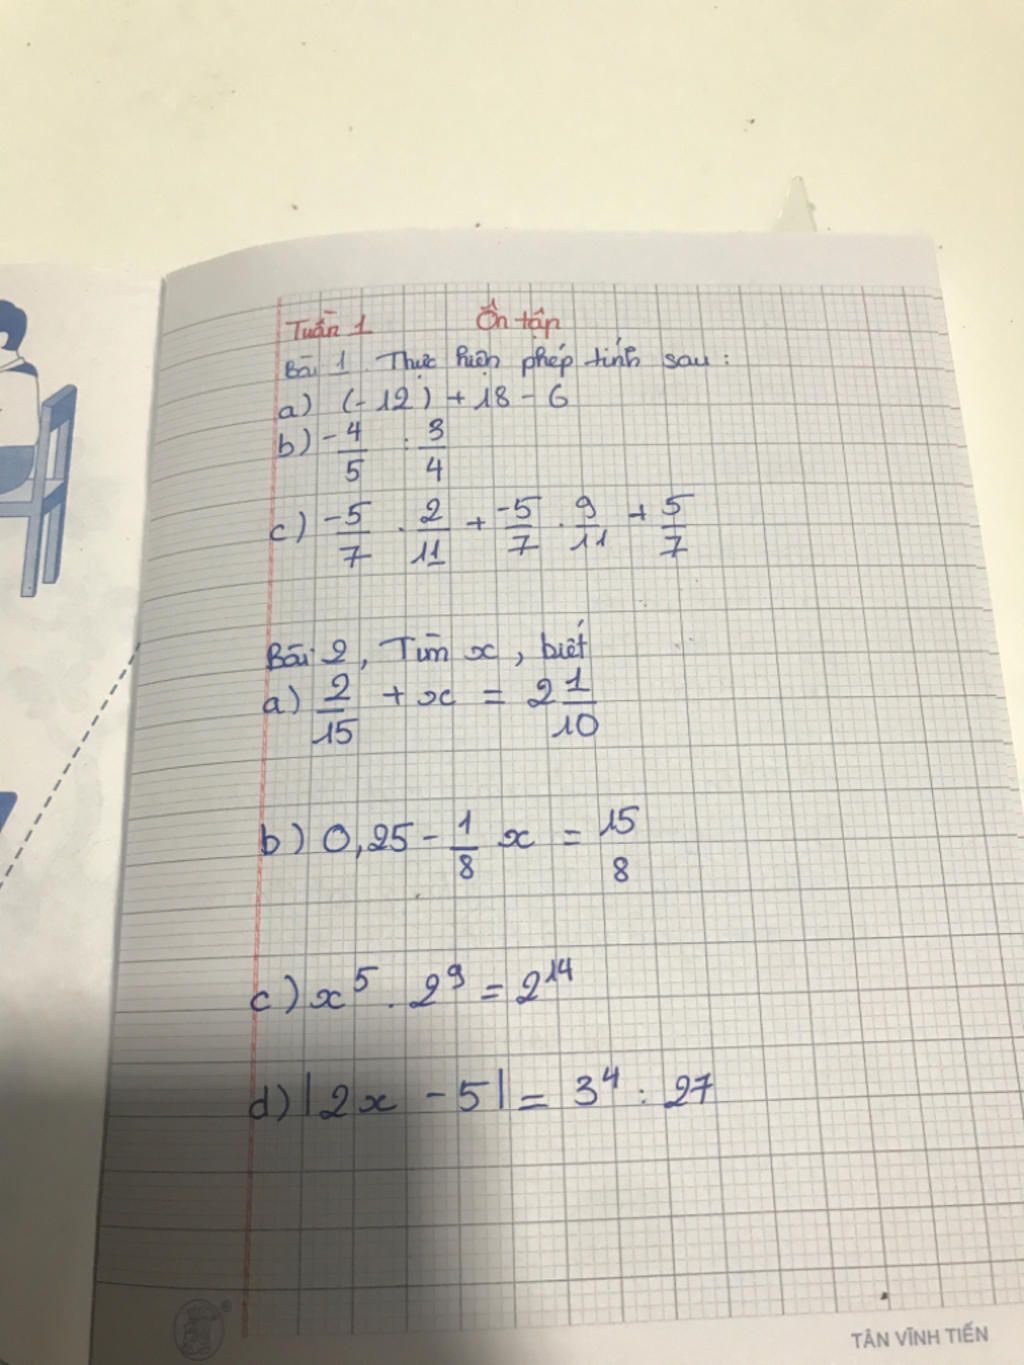 Tuần 1 Ôn tập
Bài 1. Thực hiện phép tính sau:
a) (-12) + 18 - 6
b) -4/5 : 3/4
c) -5/7 . 2/11 + -5/7 . 9/11 + 5/7
Bài 2, Tìm x, biết
a) 2/15 + x = 2 1/10
b) 0,25 - 1/8 x = 15/8
c) x⁵ . 2⁹ = 2¹⁴
d) |2x - 5| = 3⁴ : 27
TÂN VĨNH TIẾN